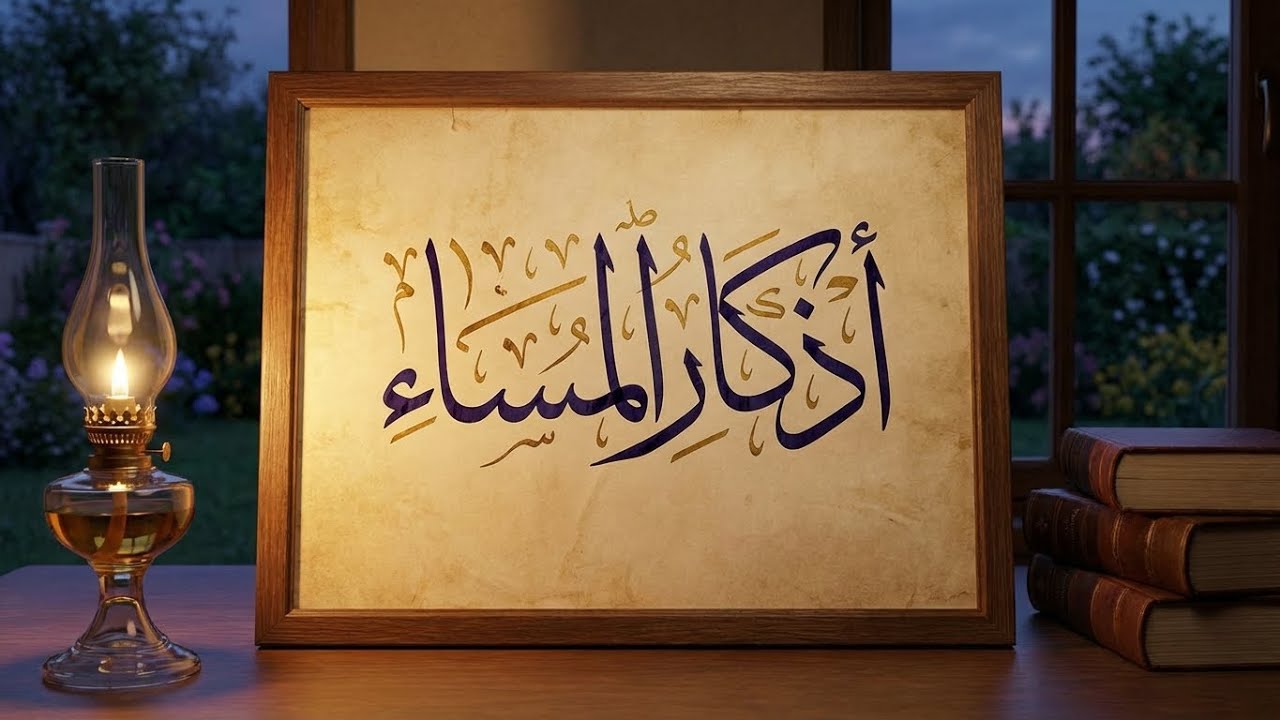 أذكار المساء